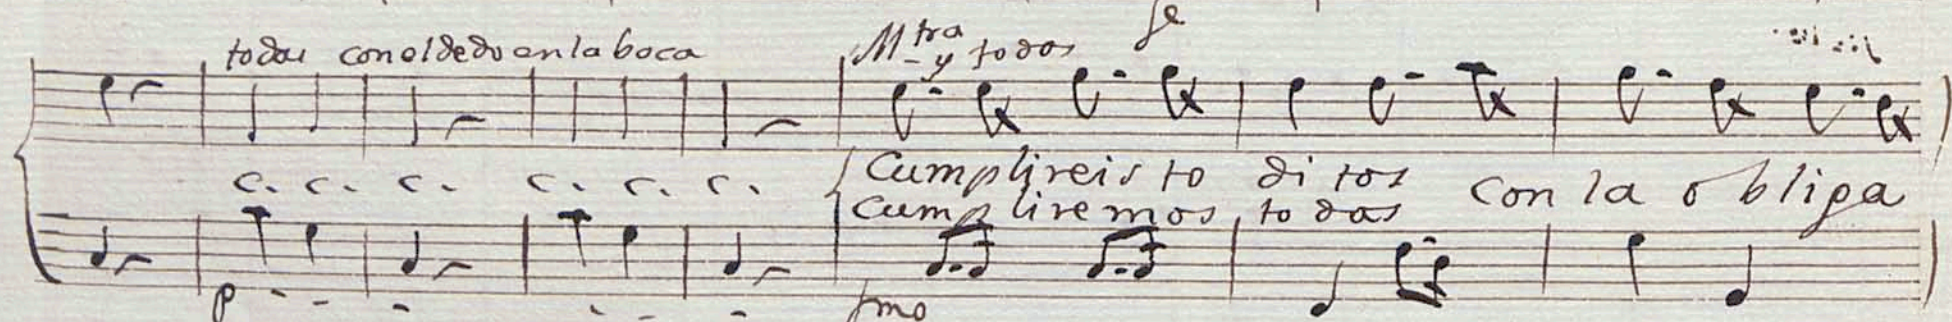 todas con el dedo en la boca
Mtra y todos
fe
c. c. c. c. c. c.
Cumplireis to di tos con la o bliga
Cumpliremos todas
p
fmo